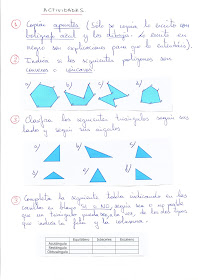 ACTIVIDADES
1 Copiar apuntes (Solo se copia lo escrito con
bolígrafo azul y los dibujos. Lo escrito en
negro son explicaciones para que lo entiendas).
2 Indica si los siguientes polígonos son
convexos o cóncavos:
a) b) c) d)
2 Clasifica los siguientes triángulos según sus
lados y según sus ángulos
a) b) c)
d) e) f)
3 Completa la siguiente tabla indicando en las
casillas en blanco SI o NO, según sea o no posible
que un triángulo pueda ser a la vez, de los dos tipos
que indica la fila y la columna.
Equilátero Isósceles Escaleno
Acutángulo
Rectángulo
Obtusángulo